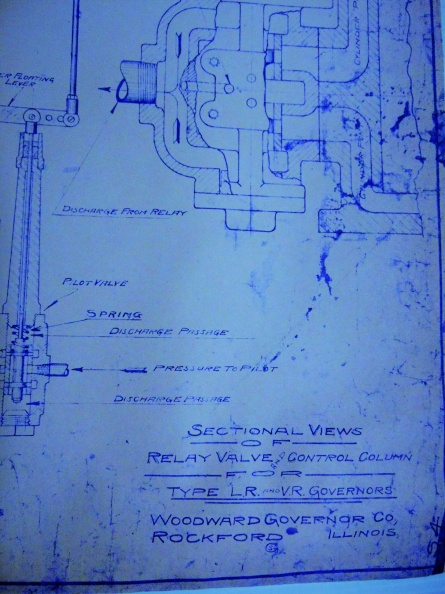 ER FLOATING
LEVER
CYLINDER P
CYLINDER
DISCHARGE FROM RELAY
PILOT VALVE
SPRING
DISCHARGE PASSAGE
PRESSURE TO PILOT
DISCHARGE PASSAGE
SECTIONAL VIEWS
OF
RELAY VALVE AND CONTROL COLUMN
FOR
TYPE L.R. AND V.R. GOVERNORS
WOODWARD GOVERNOR CO,
ROCKFORD ILLINOIS